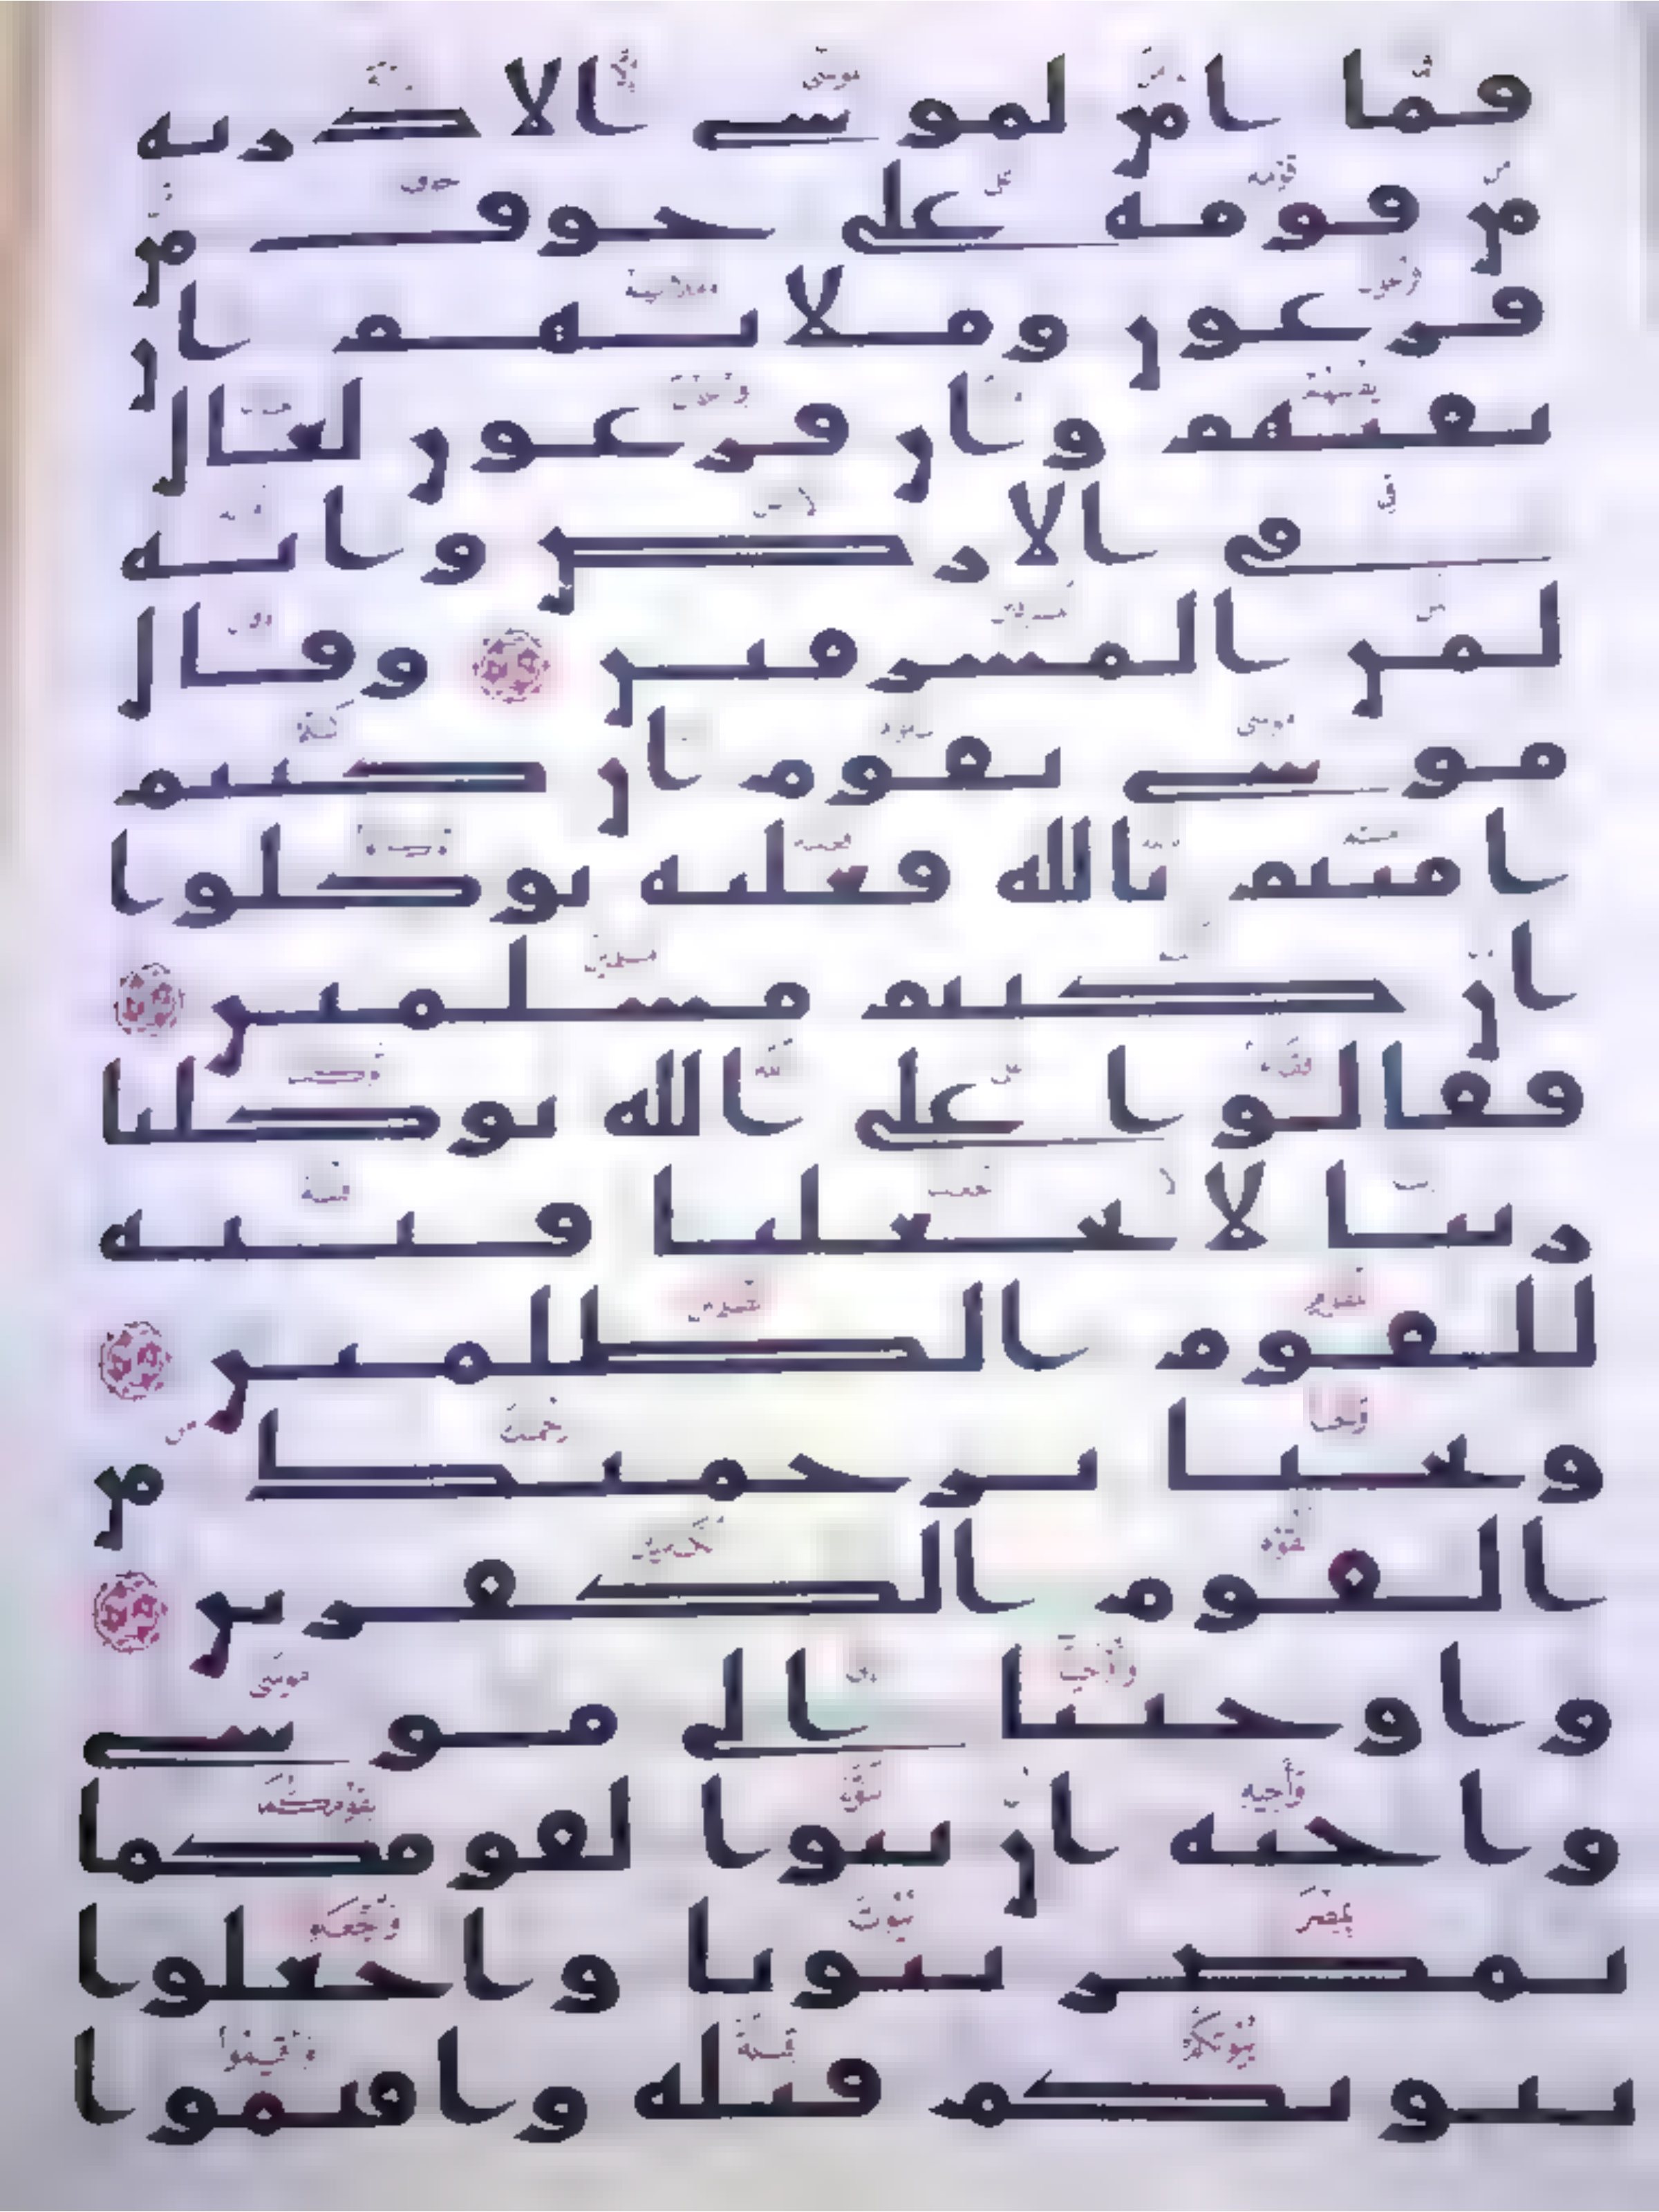 فما امن لموسى الا ذرية
من قومه على خوف من
فرعون وملائهم ان
يفتنهم وان فرعون لعال
في الارض وانه
لمن المسرفين وقال
موسى يقوم ان كنتم
امنتم بالله فعليه توكلوا
ان كنتم مسلمين
فقالوا على الله توكلنا
ربنا لا تجعلنا فتنة
للقوم الظلمين
ونجنا برحمتك من
القوم الكفرين
واوحينا الى موسى
واخيه ان تبوا لقومكما
بمصر بيوتا واجعلوا
بيوتكم قبلة واقيموا